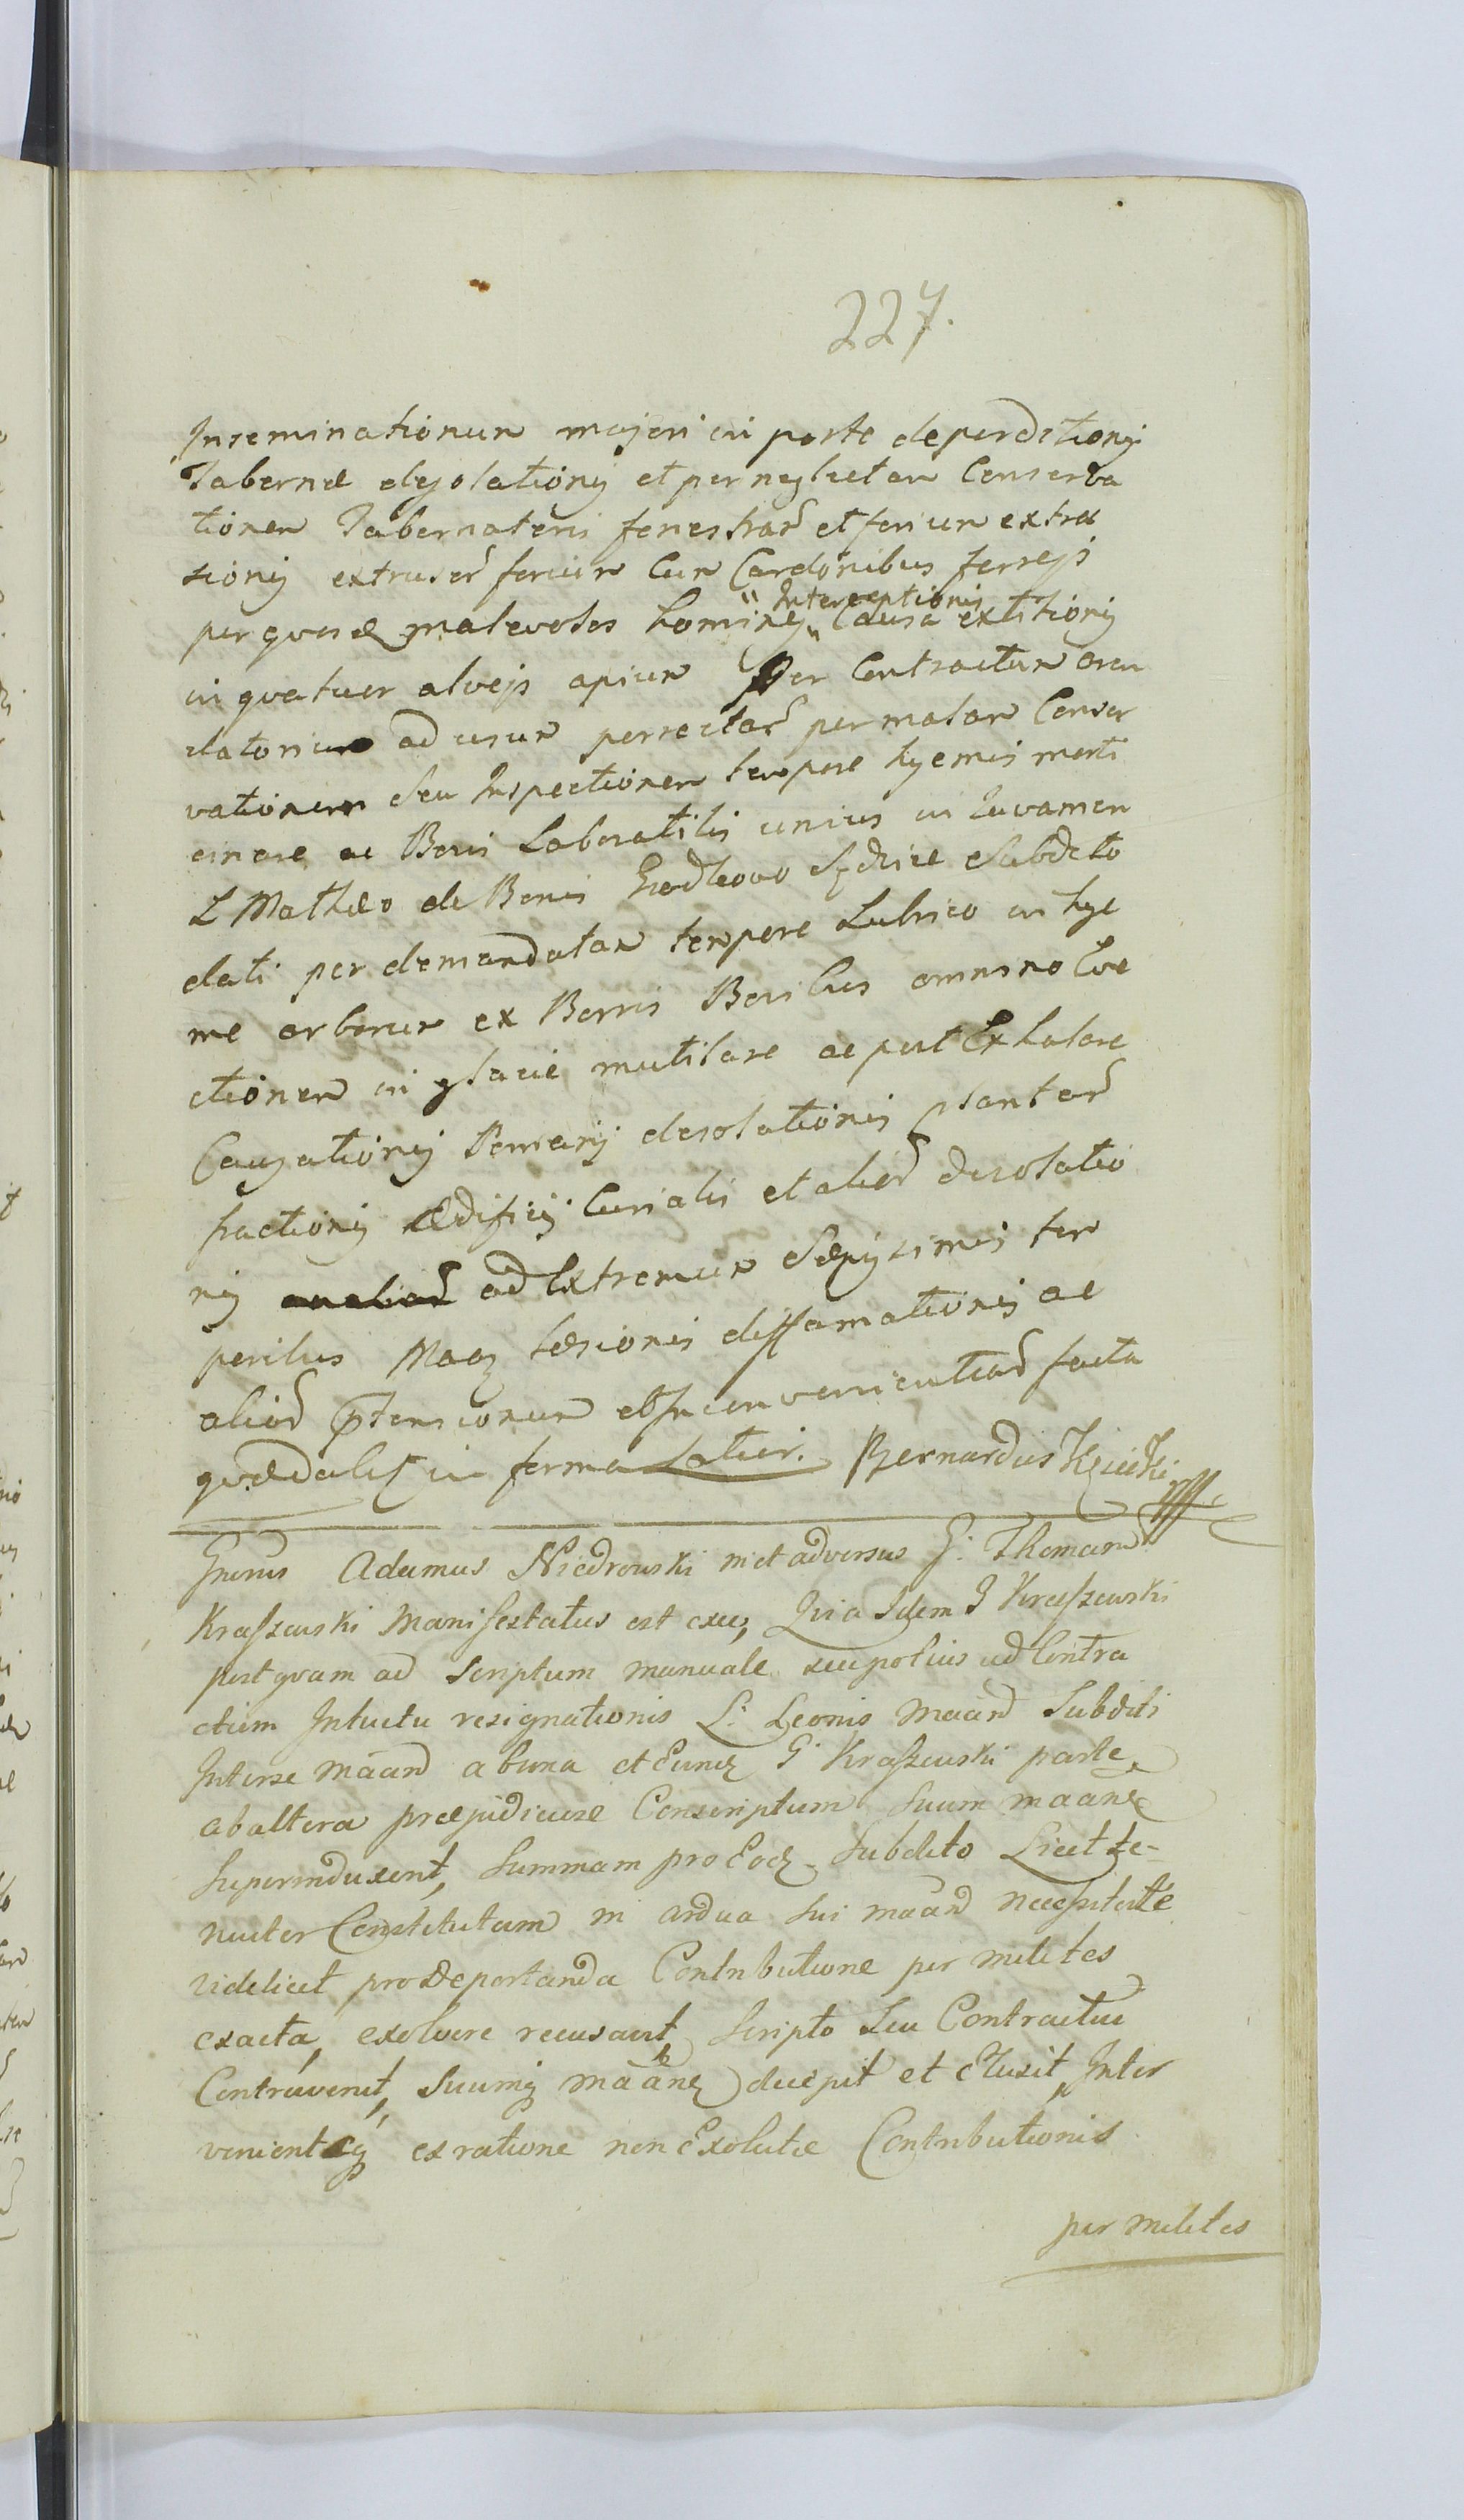 227.
Inseminationum majori in parte deperditionis
Tabernæ desolationis et per neglectam Conserva
tionem Tabernatoris fenestrar̃ et forium extra
ctionis extruser̃ forium Cum Cardonibus ferreis
per quosd malevolos homines " Interceptionis " Causa extitionis
in quatuor alveis apium Per Contractum aren
datorium ad usum perrectar̃ per malam Conser
vationem seu Inspectionem tempore hyemis morti
cinare ac Bovis Laboratilis unius in Iuvamen
L Mathæo de Bonis Subdito
dati per demandatam tempore Lubrico in hye
me arborum ex Borris Bovibus omnino Eve
ctionem in glacie mutilare ac post Exhalare
Causationis Pomarij desolationis plantar̃
fractionis Ædificij Curialis et alior̃ desolatio
nis ad Extremum Sæpissimis tem
poribus Mag læsionis diffamationis ac
aliar̃ prtensionum et Inconvenientiar̃ facta
quædalis in forma Latiori. Bernardus Krzicki mp
Gnerus Adamus Niedrowski in et adversus G: Thomam
Kraszewski Manifestatus est exeo, Quia Idem G Kraszewski
postquam ad Scriptum manuale seu potius ad Contra
ctum Intuitu resignationis L: Leonis Maand Subditi
Inter se maand ab una et Eundz G Kraszewski parte
ab altera præjudiciose Conscriptum Suum maanz
Superinduxerit, Summam pro Eodz Subdito Licet te-
nuiter Constitutam in ardua sui maand necessitate
videlicet pro Deportanda Contributione per milites
exacta, exolvere recusavit, Scripto Seu Contractui
Contravenit, Suumq maanz decepit et elusit, Inter
venientq ex ratione non Exolutæ Contributionis
per milites